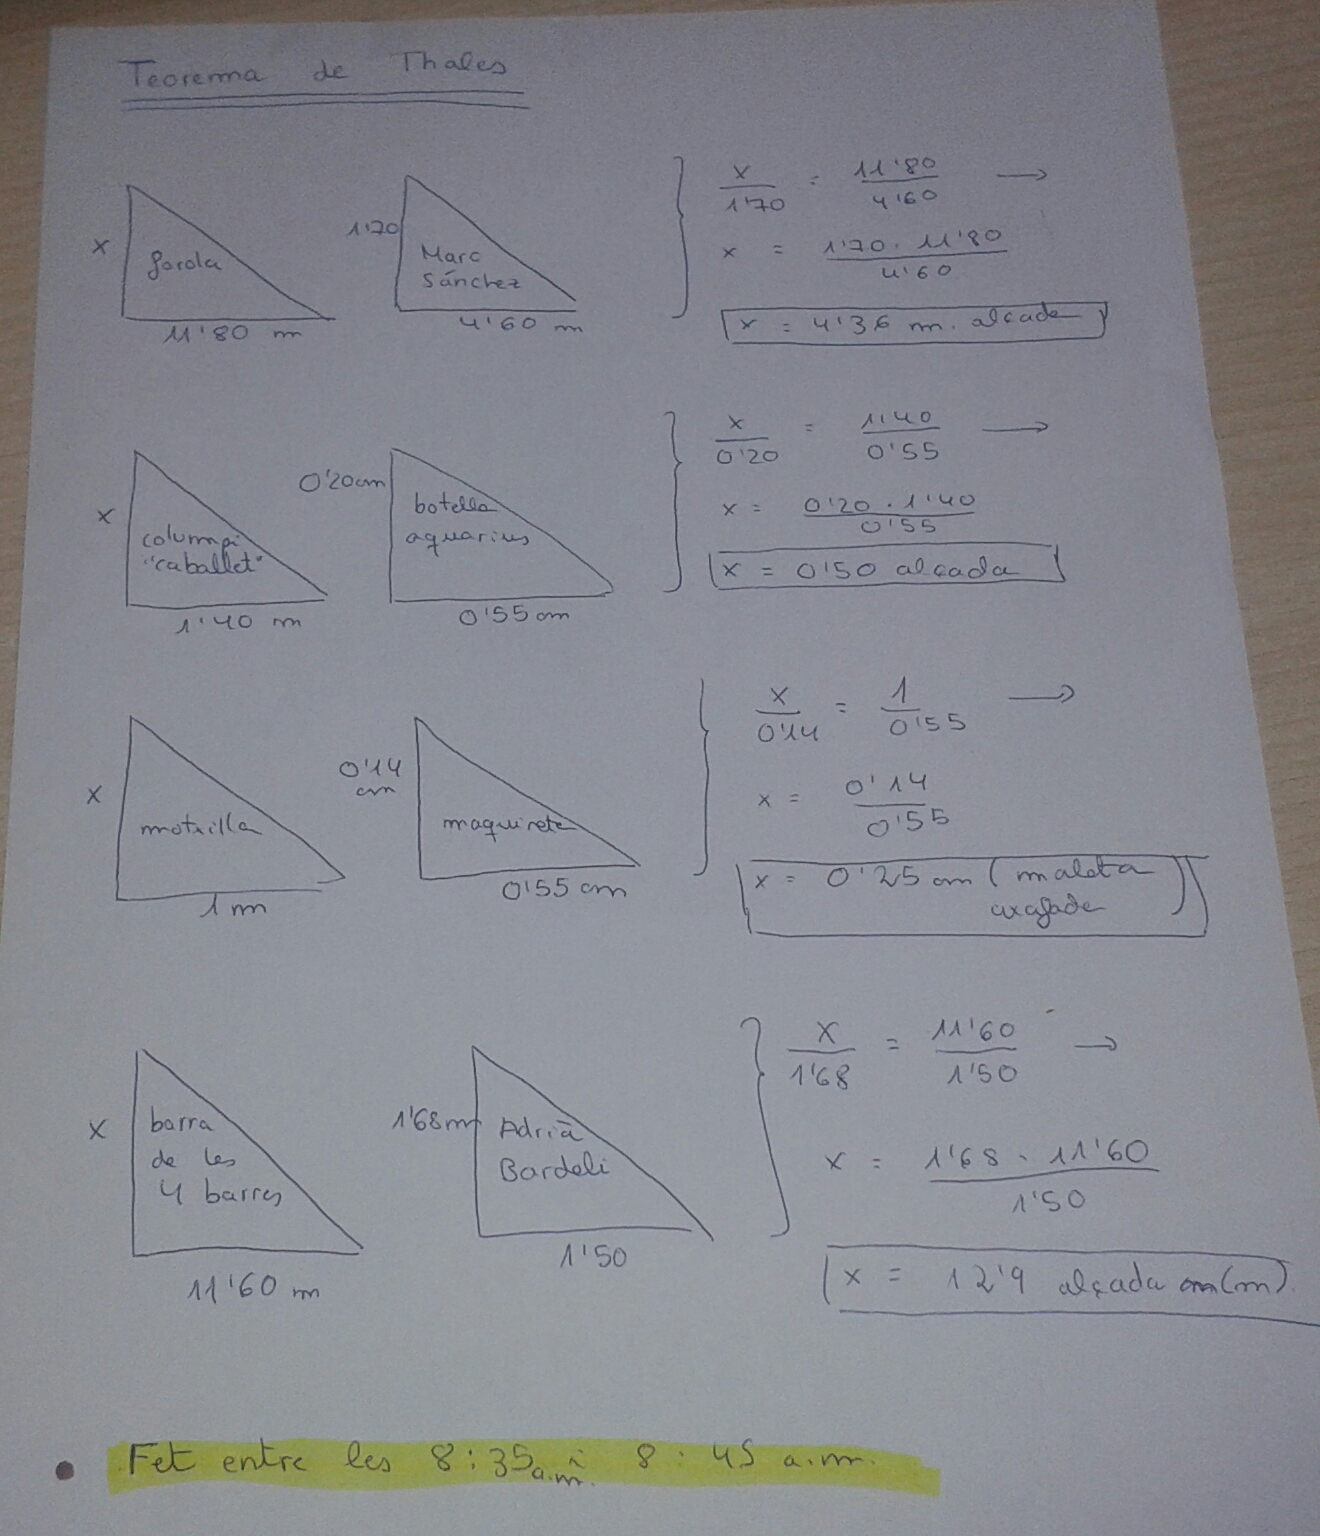 Teorema de Thales
x
farola
11'80 m
1'70
Marc
Sánchez
4'60 m
x / 1'70 = 11'80 / 4'60 →
x = 1'70 · 11'80 / 4'60
x = 4'36 m. alçada
x
columpi
"caballet"
1'40 m
0'20 cm
botella
aquarius
0'55 cm
x / 0'20 = 1'40 / 0'55 →
x = 0'20 · 1'40 / 0'55
x = 0'50 alçada
x
motxilla
1 m
0'14
cm
maquineta
0'55 cm
x / 0'14 = 1 / 0'55 →
x = 0'14 / 0'55
x = 0'25 cm (maleta
axafada)
x
barra
de les
4 barres
11'60 m
1'68 m
Adrià
Bardeli
1'50
x / 1'68 = 11'60 / 1'50 →
x = 1'68 · 11'60 / 1'50
x = 12'9 alçada cm (m)
• Fet entre les 8:35 a.m. i 8:45 a.m.